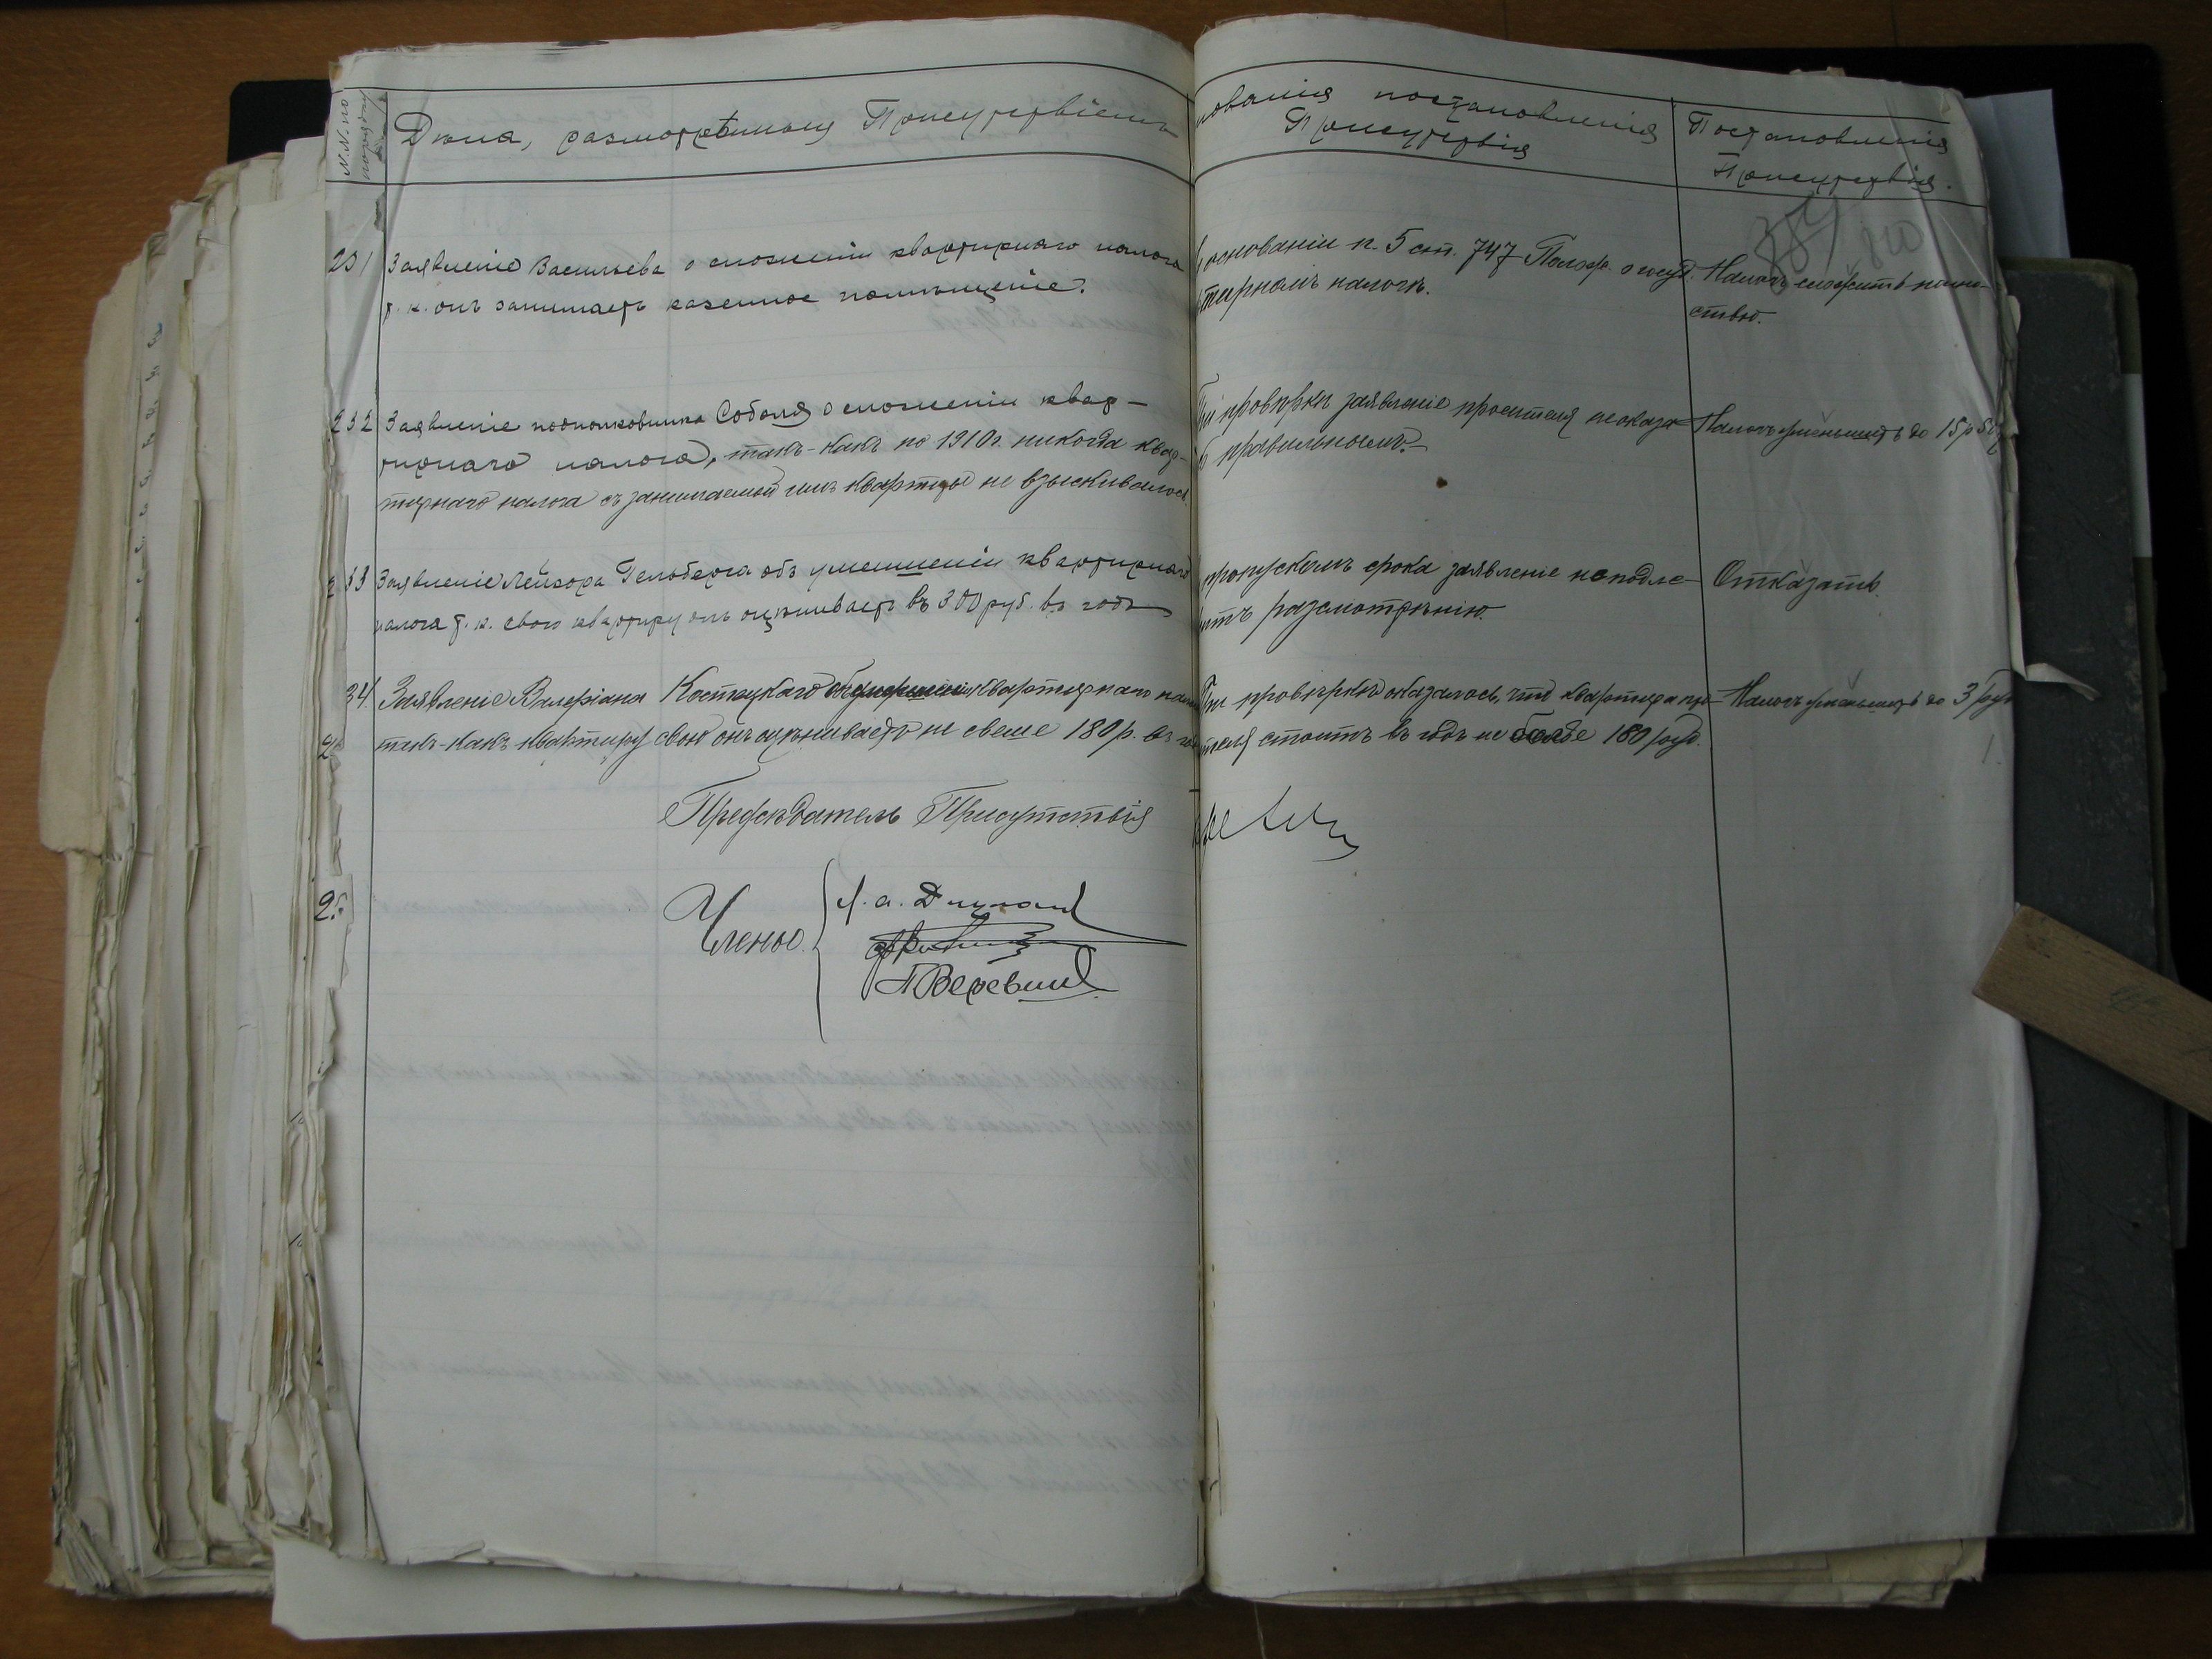 N.N. по порядку
Дѣла, разсмотрѣнныя Присутствіемъ
нованія постановленія
Присутствія
Постановленія
Присутствія.
384
231 Заявленіе Васильева о сложеніи квартирнаго налога
т. к. онъ занимаетъ казенное помѣщеніе.
основаніи п. 5 ст. 747 Полож. о госуд.
тирномъ налогѣ.
Налогъ сложить полно-
стью.
232 Заявленіе подполковника Соболя о сложеніи квар-
тирнаго налога, такъ-какъ по 1910 г. никогда квар-
тирнаго налога съ занимаемой имъ квартиры не взыскивалось.
При провѣркѣ заявленіе просителя не оказа-
правильнымъ.
Налогъ уменьшить до 15 р 50
233 Заявленіе Лейзора Гельберга объ уменшеніи квартирнаго
налога т. к. свою квартиру онъ оцѣниваетъ въ 300 руб. въ годъ
пропускомъ срока заявленіе не подле-
итъ разсмотрѣнію.
Отказать.
34. Заявленіе Валеріана Костецкаго объ уменьшеніи квартирнаго нало
такъ-какъ квартиру свою онъ оцѣниваетъ не свыше 180 р. въ го
При провѣркѣ оказалось, что квартира про-
теля стоитъ въ годъ не болѣе 180 руб.
Налогъ уменьшить до 3 руб
Предсѣдатель Присутствія
Члены
П Веревкин